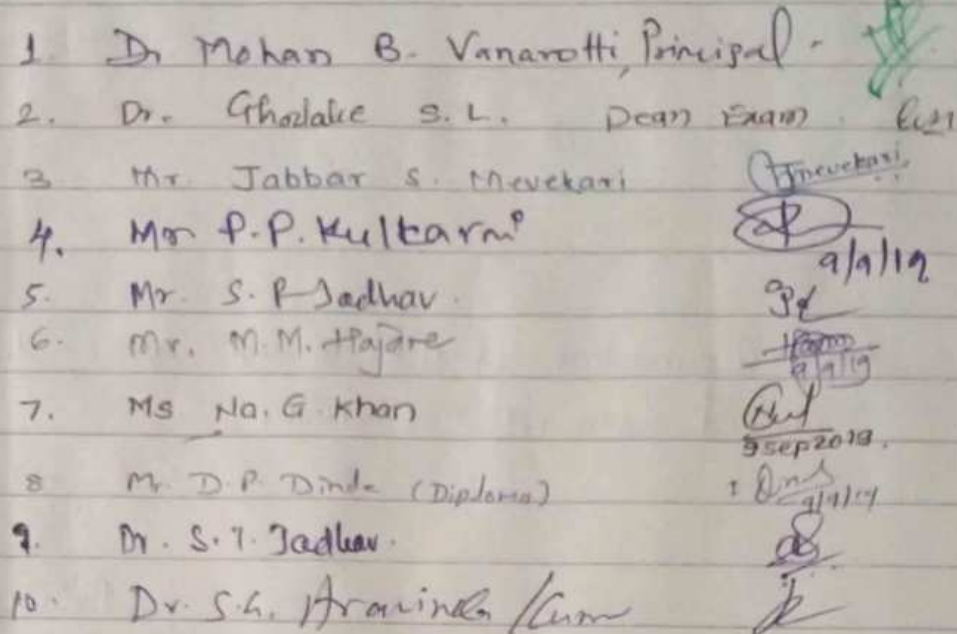 1. Dr Mohan B. Vanarotti, Principal.
2. Dr. Ghodake S. L. Dean Exam.
3 Mr. Jabbar S. Mevekari Jmevekari
4. Mr P. P. Kulkarni
9/9/19
5. Mr. S. P. Jadhav.
6. Mr. M. M. Hajare
9/9/19
7. Ms Na. G. Khan
9 Sep 2019.
8 Mr. D. P. Dinde (Diploma)
9/9/19
9. Dr. S. T. Jadhav.
10. Dr. S. G. Aravinda Kum